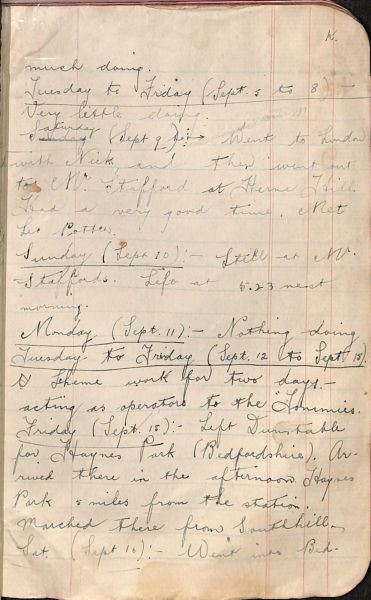 K.
much doing.
Tuesday to Friday (Sept. 5 to 8) -
Very little doing.
Saturday (Sept 9):- Went to London
with Nick, and then went out
to Mr. Stafford at Herne Hill.
Had a very good time. Met
Les Potter.
Sunday (Sept 10):- Still at Mr.
Staffords. Left at 5.23 next
morning.
Monday (Sept. 11):- Nothing doing
Tuesday to Friday (Sept. 12 to Sept. 15).
Scheme work for two days -
acting as operators to the "Tommies.
Friday (Sept. 15):- Left Dunstable
for Haynes Park (Bedfordshire). Ar-
rived there in the afternoon. Haynes
Park 5 miles from the station.
Marched there from Southhill -
Sat. (Sept 16):- Went into Bed-